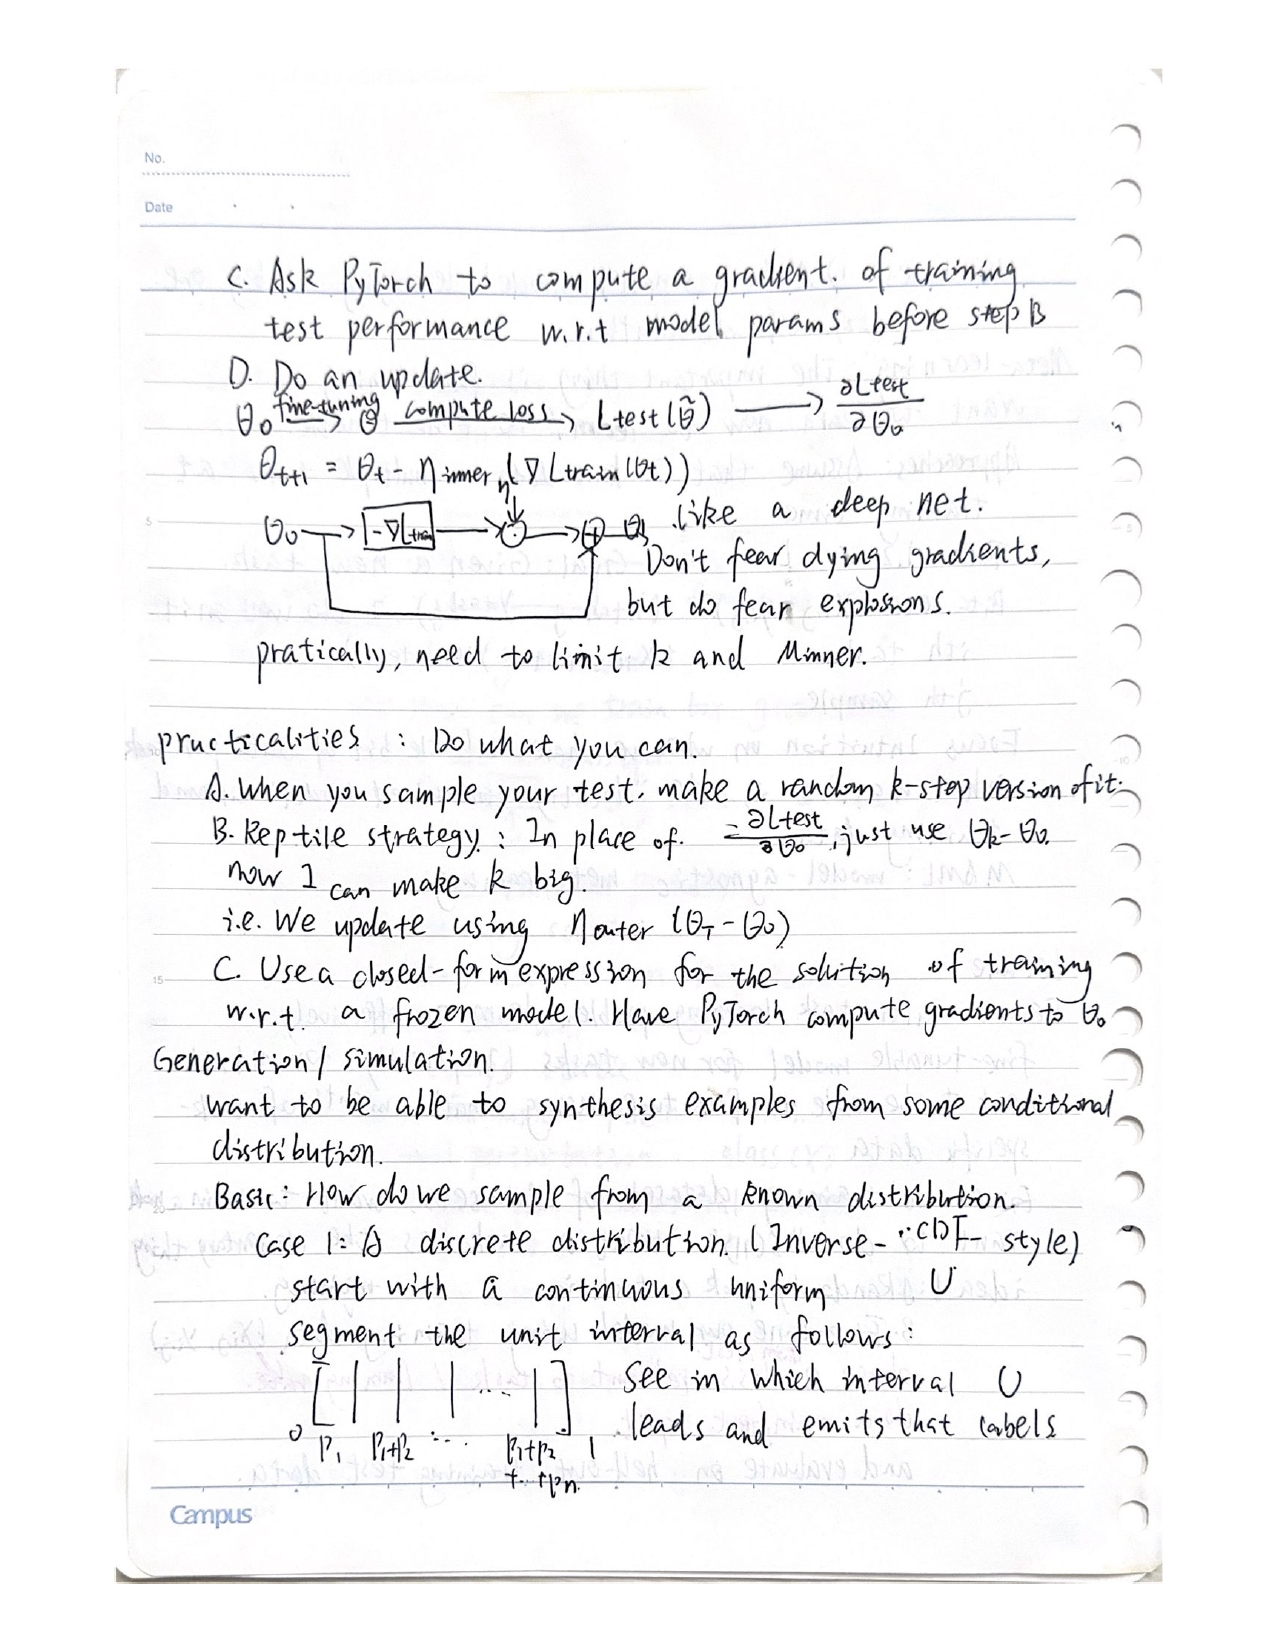 No.
Date
C. Ask PyTorch to compute a gradient. of training
test performance w.r.t model params before step B
D. Do an update.
θ₀ fine-tuning → θ̃ compute loss → Ltest(θ̃) → ∂Ltest/∂θ₀
θt+1 = θt - ηinner (∇Ltrain(θt))
η
θ₀ → -∇Ltrain → ⊙ → ⊕ θ₁ like a deep net.
Don't fear dying gradients,
but do fear explosions.
pratically, need to limit k and ηinner.
practicalities : Do what you can.
A. When you sample your test. make a random k-step version of it.
B. Reptile strategy : In place of. -∂Ltest/∂θ₀, just use θk-θ₀.
now I can make k big.
i.e. We update using ηouter (θT-θ₀)
C. Use a closed-form expression for the solution of training
w.r.t. a frozen model. Have PyTorch compute gradients to θ₀
Generation / simulation.
want to be able to synthesis examples from some conditional
distribution.
Basic : How do we sample from a known distribution.
Case 1: A discrete distribution. (Inverse-CDF-style)
start with a continuous uniform U
segment the unit interval as follows :
[ | | | ... | ] See in which interval U
0 P₁ P₁+P₂ ... P₁+P₂+...+Pn. 1 leads and emits that labels
5
15
Campus